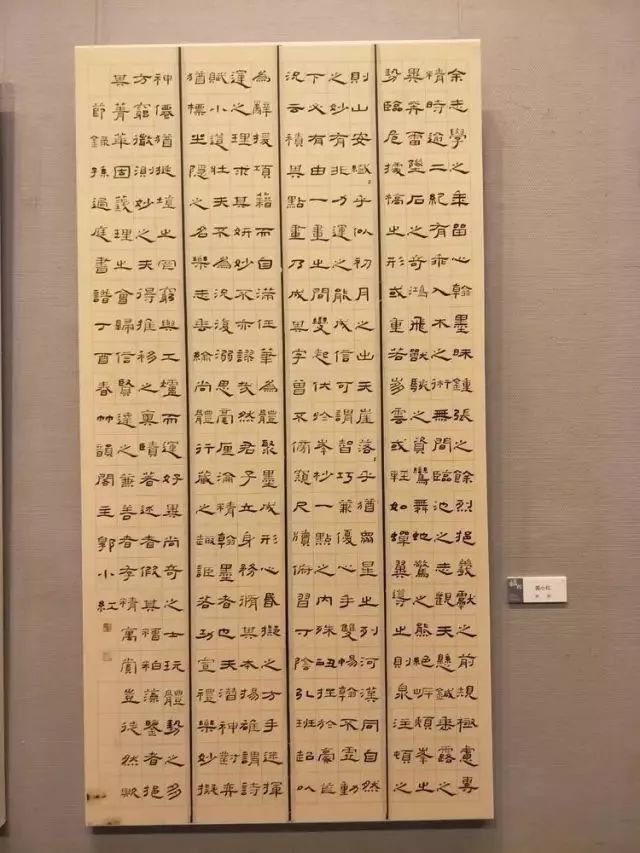 余志學之年留心翰墨昧鍾張之餘烈挹羲獻之前規極慮專
精時逾二紀有乖入木之術無間臨池之志觀夫懸鍼垂露之
異奔雷墜石之奇鴻飛獸駭之資鸞舞蛇驚之態絕岸頹峯之
勢臨危據槁之形或重若崩雲或輕如蟬翼導之則泉注頓之
則山安纖〻乎似初月之出天崖落〻乎猶眾星之列河漢同自然
之妙有非力運之能成信可謂智巧兼優心手雙暢翰不虛動
下必有由一畫之間變起伏於峯杪一點之內殊衄挫於豪芒
況云積其點畫乃成其字曾不傍窺尺牘俯習寸陰引班超以
為辭援項籍而自滿任筆為體聚墨成形心昏擬之方手迷揮
運之理求其妍妙不亦謬哉然君子立身務脩其本揚雄謂詩
賦小道壯夫不為況復溺思毫厘淪精翰墨者也夫潛神對弈
猶標坐隱之名樂志垂綸尚體行藏之趣詎若功宣禮樂妙擬
神僊猶埏埴之罔窮與工爐而運好異尚奇之士玩體勢之多
方窮微測妙之夫得推移之奧賾著述者假其糟粕藻鑒者挹
其菁華固義理之會歸信賢達之兼善者存精寓賞豈徒然歟
節錄孫過庭書譜丁酉春竹韻閣主郭小紅